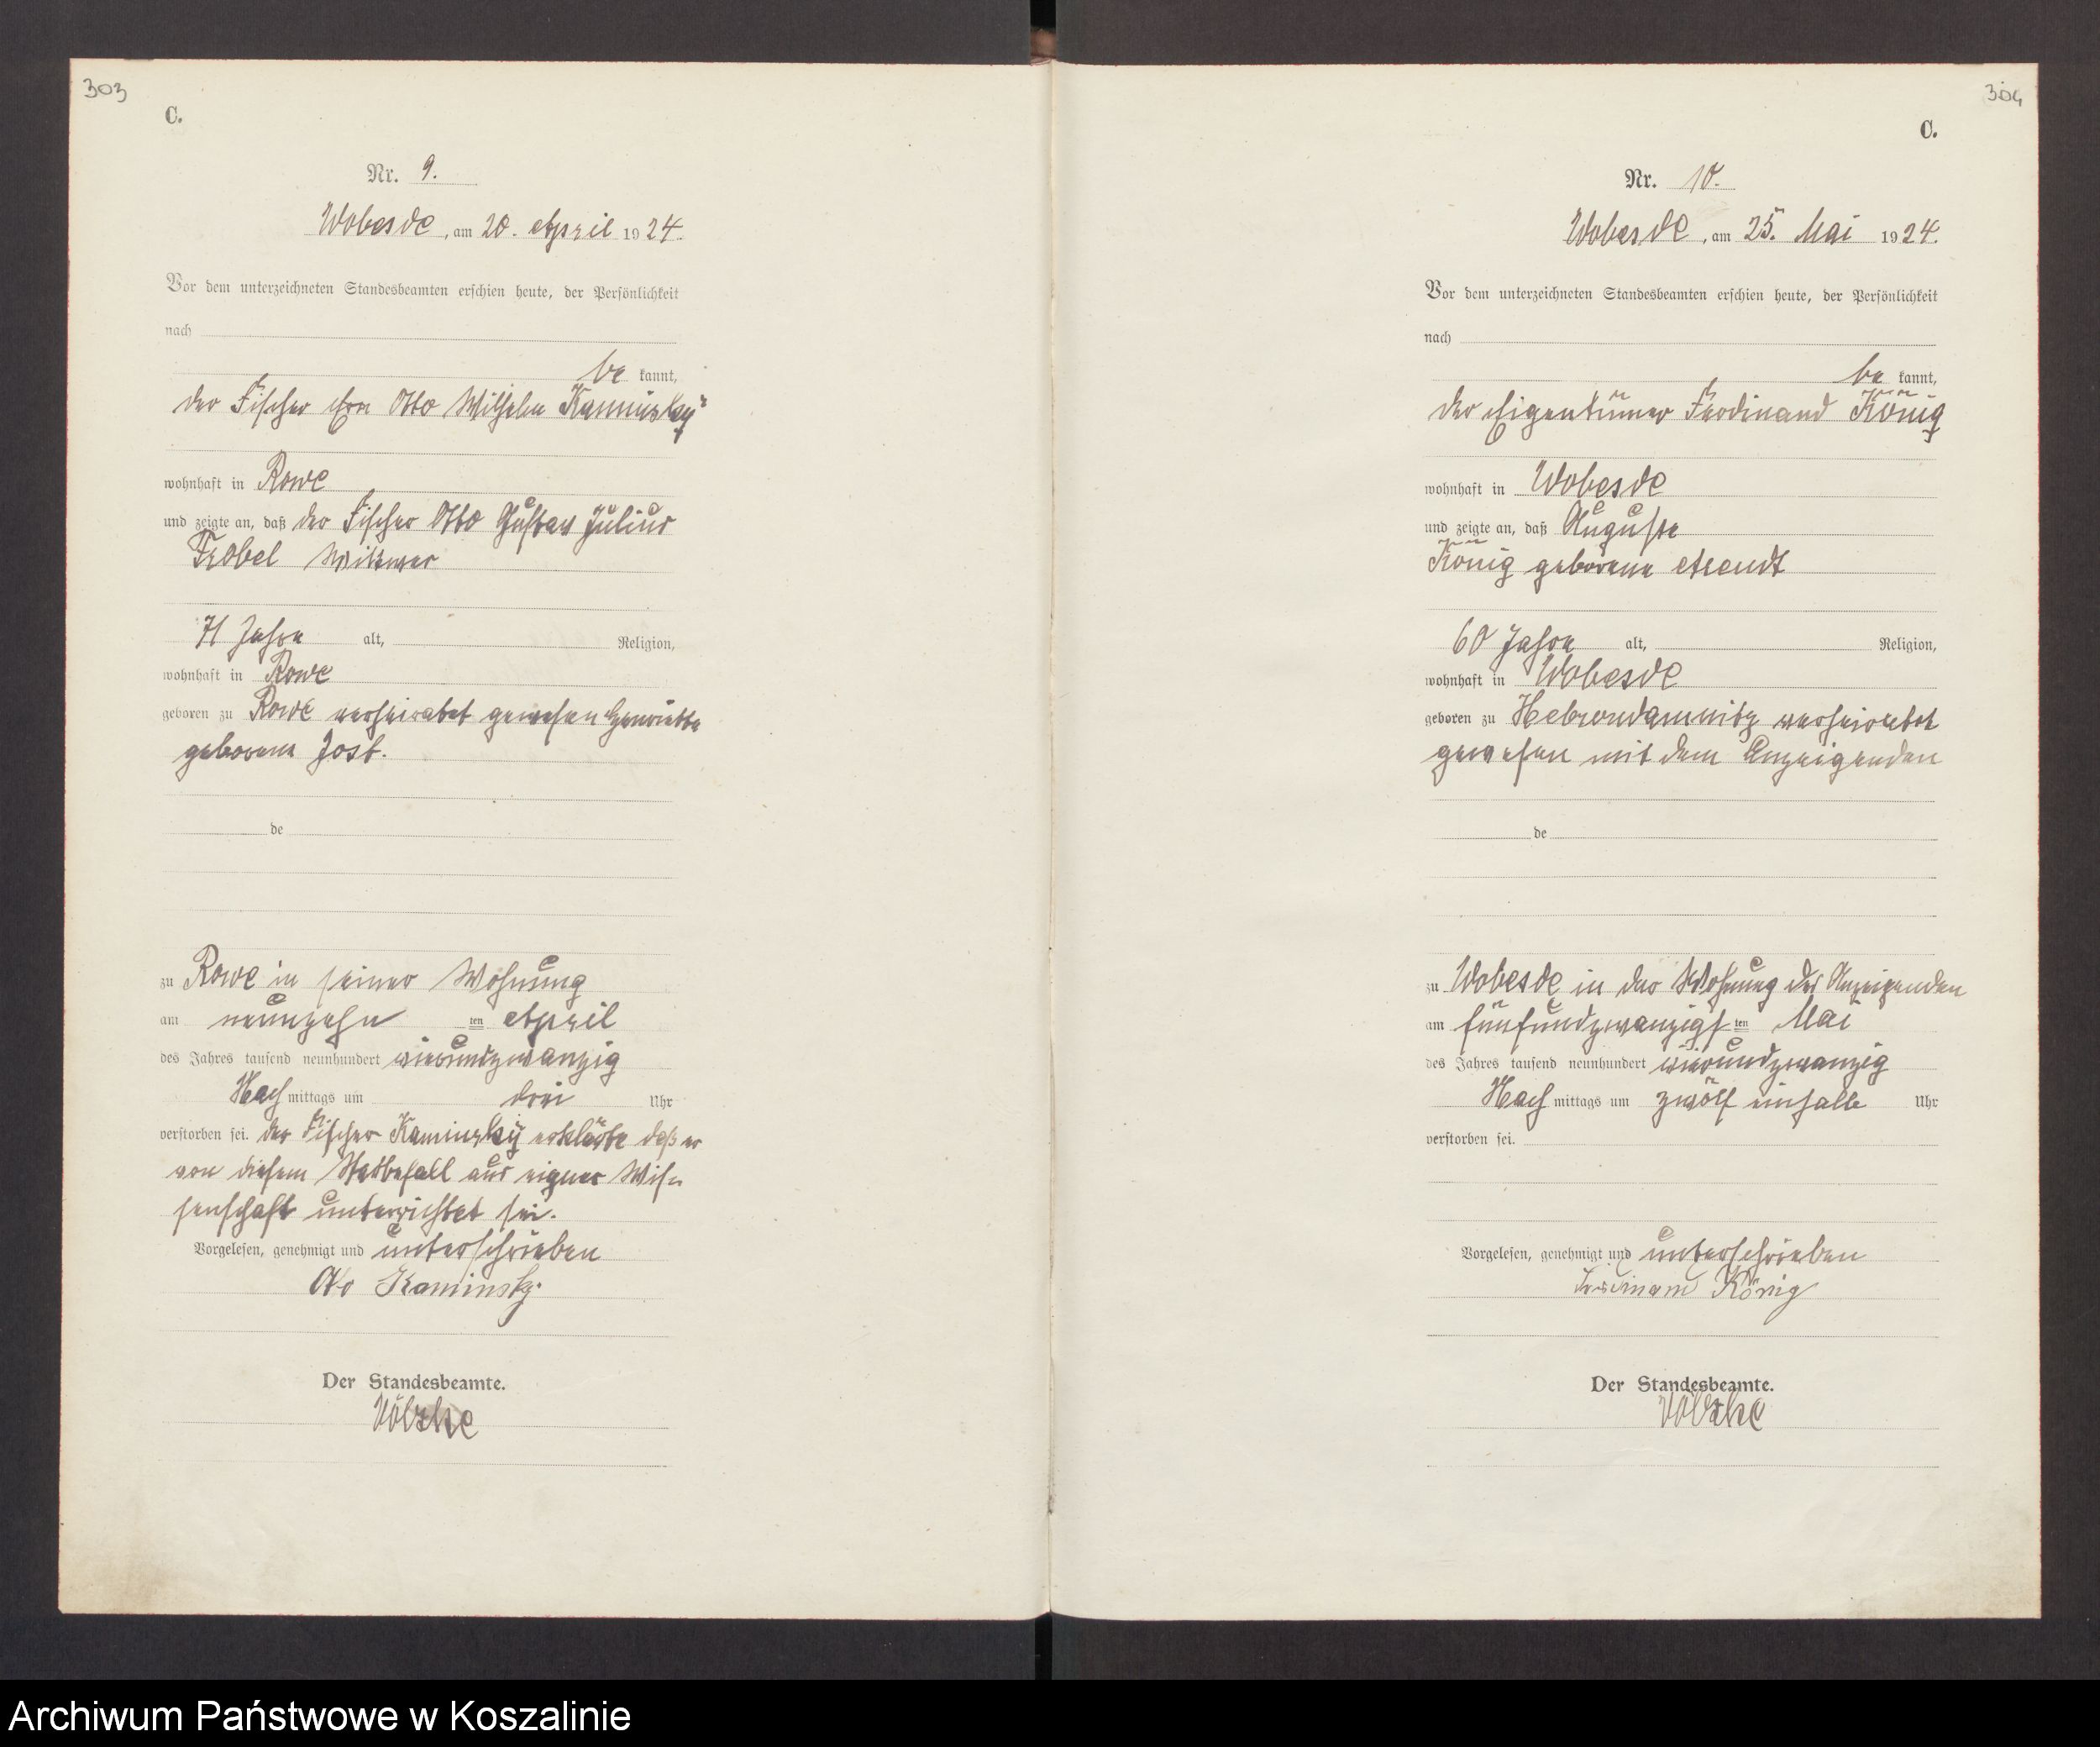 303
C.
Nr. 9.
Wobesde, am 20. April 1924.
Vor dem unterzeichneten Standesbeamten erschien heute, der Persönlichkeit
nach
be kannt,
der Fischer Otto Wilhelm Kaminsky
wohnhaft in Rowe
und zeigte an, daß der Fischer Otto Gustav Julius
Frobel Witwer
71 Jahre alt, Religion,
wohnhaft in Rowe
geboren zu Rowe verheiratet gewesen Henriette
geborene Jost.
de
zu Rowe in seiner Wohnung
am neunzehn ten April
des Jahres tausend neunhundert vierundzwanzig
Nach mittags um drei Uhr
verstorben sei. der Fischer Kaminsky erklärte daß er
von diesem Sterbefall aus eigner Wis-
senschaft unterrichtet sei.
Vorgelesen, genehmigt und unterschrieben
Otto Kaminsky.
Der Standesbeamte.
Völzke
304
C.
Nr. 10.
Wobesde, am 25. Mai 1924.
Vor dem unterzeichneten Standesbeamten erschien heute, der Persönlichkeit
nach
be kannt,
der Eigentümer Ferdinand König
wohnhaft in Wobesde
und zeigte an, daß Auguste
König geborene Arendt
60 Jahre alt, Religion,
wohnhaft in Wobesde
geboren zu Hebrondamnitz verheiratet
gewesen mit dem Anzeigenden
de
zu Wobesde in der Wohnung des Anzeigenden
am fünfundzwanzigs ten Mai
des Jahres tausend neunhundert vierundzwanzig
Nach mittags um zwölf einhalb Uhr
verstorben sei.
Vorgelesen, genehmigt und unterschrieben
Ferdinand König
Der Standesbeamte.
Völzke
Archiwum Państwowe w Koszalinie